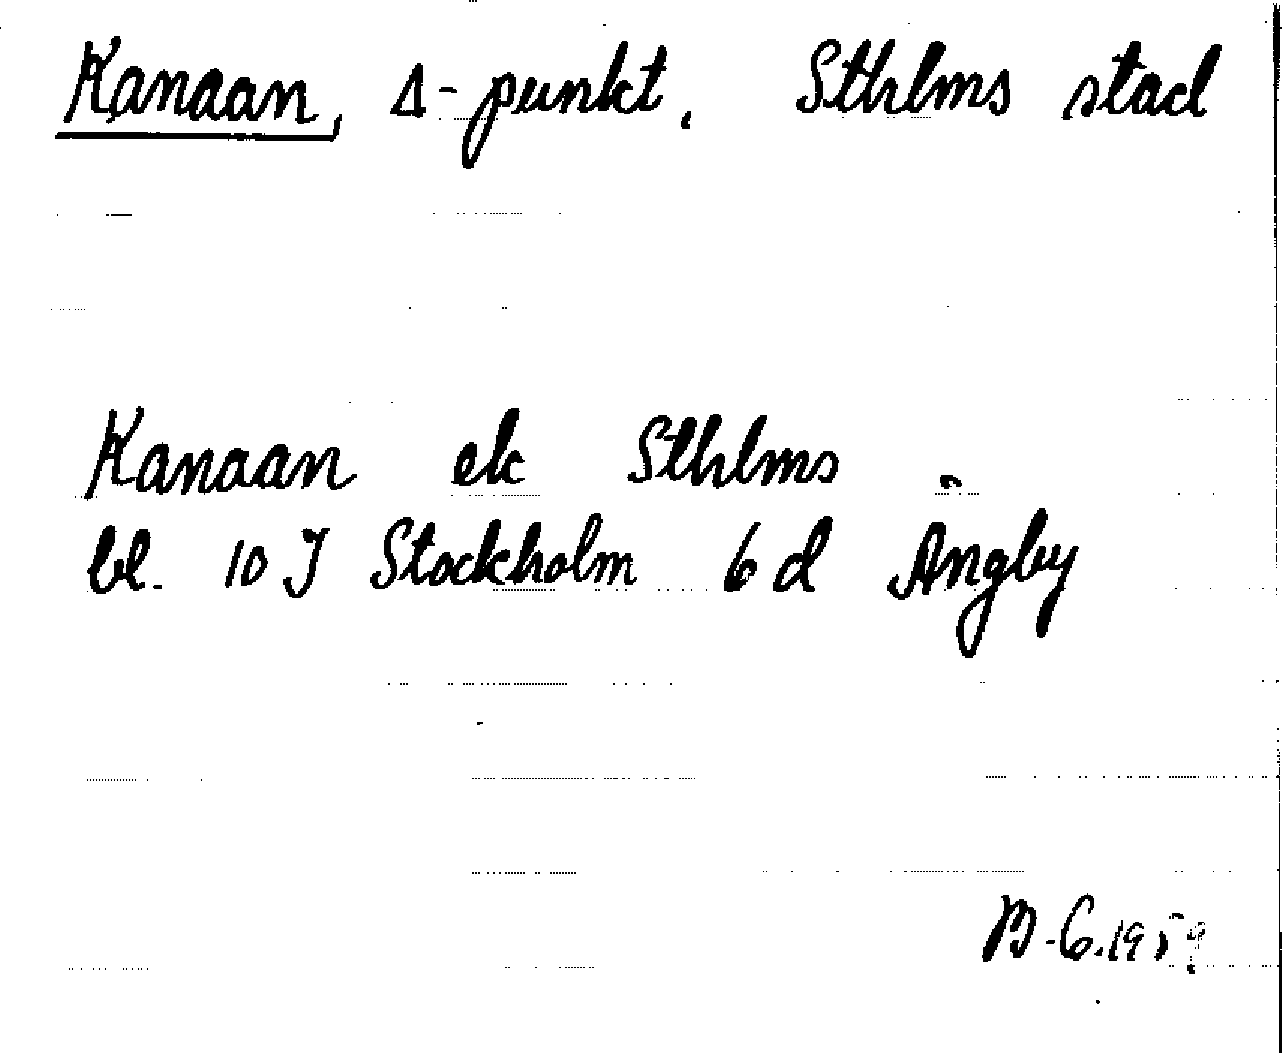 Kanaan, Δ-punkt, Sthlms stad
Kanaan ek Sthlms
bl. 10 J Stockholm 6 d Ängby
B-G.1959